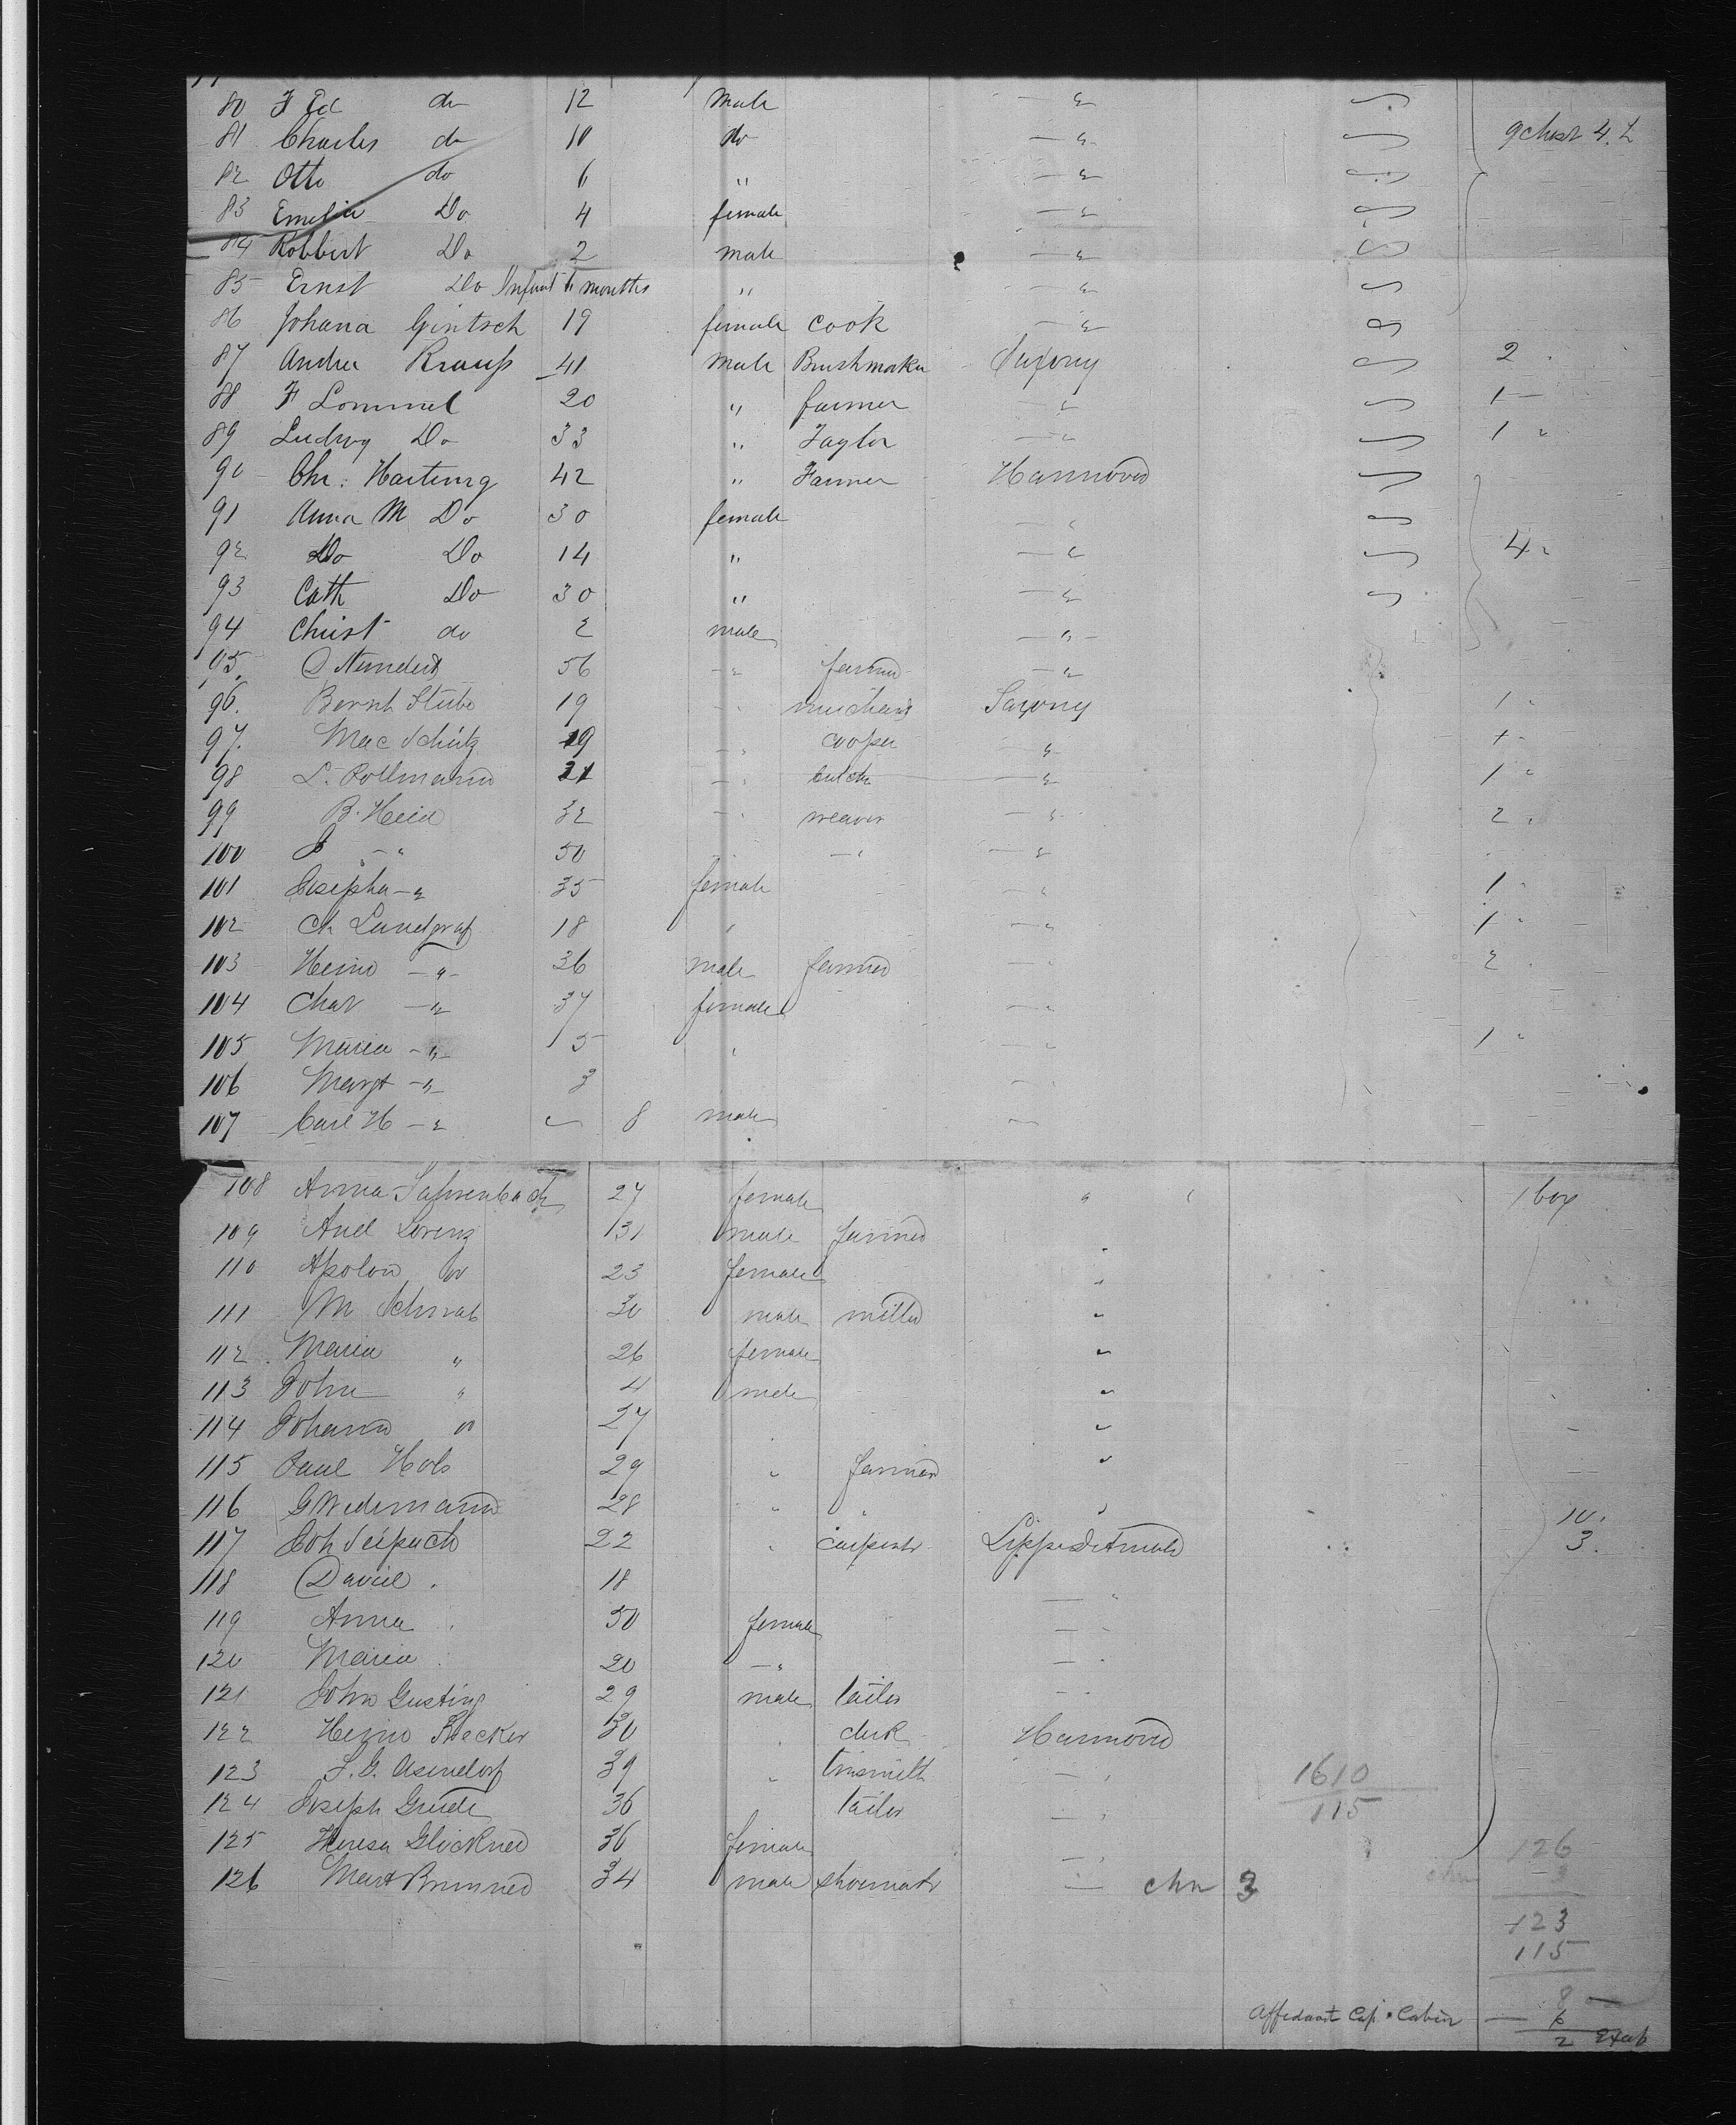 80 F Ed do 12 Male " 
81 Charles do 10 do " 9 Chest 4. L
82 Otto do 6 " "
83 Emelie Do 4 female "
84 Robbert Do 2 male "
85 Ernst Do Infant 6 months " "
86 Johana Gintsch 19 female Cook "
87 Andrea Krauss 41 Male Brushmaker Saxony 2
88 F Lommel 20 " farmer " 1
89 Ludwig Do 33 " Taylor " 1 "
90 Chr: Hartung 42 " Farmer Hannover
91 Anna M Do 30 female "
92 Do Do 14 " " 4 "
93 Cath Do 30 " "
94 Christ do 2 male "
95. D 56 " farmer "
96. Bernh Stube 19 " Saxony 1 "
97. Mac Schütz 19 " cooper " 1 "
98 L. Pollmann 21 " butch " 1 "
99 B. Heid 32 " weaver " 2 "
100 " 50 " "
101 Josepha " 35 female " 1 "
102 Ch Landgraf 18 " " 1 "
103 Heinr " 36 male farmer " 2 "
104 Char " 37 female "
105 Maria " 5 " " 1 "
106 Margt " 3 "
107 Carl H " 8 male "
108 Anna 27 female " 1 box
109 And Lorenz 31 male farmer "
110 Apolon " 23 female "
111 M Schwab 30 male miller "
112 Maria " 26 female "
113 John " 4 male "
114 Johann " 27 " "
115 Paul Hols 29 " farmer "
116 G Wedemann 28 " " " 10.
117 Joh Seipach 22 " carpentr Lippe Detmold 3.
118 David " 18 "
119 Anna " 50 female "
120 Maria " 20 " "
121 John Gusting 29 male tailor "
122 Heinr Stecker 30 " clerk Hannover
123 F. G. Asendorf 39 " tinsmith " 1610
124 Joseph Grude 36 " tailor " 115
125 Theresa Glöckner 36 female " 126
126 Mart Brunner 34 male shoemakr " chn 3 3
123
115
8
Affedavit Cap. Cabin 6
2